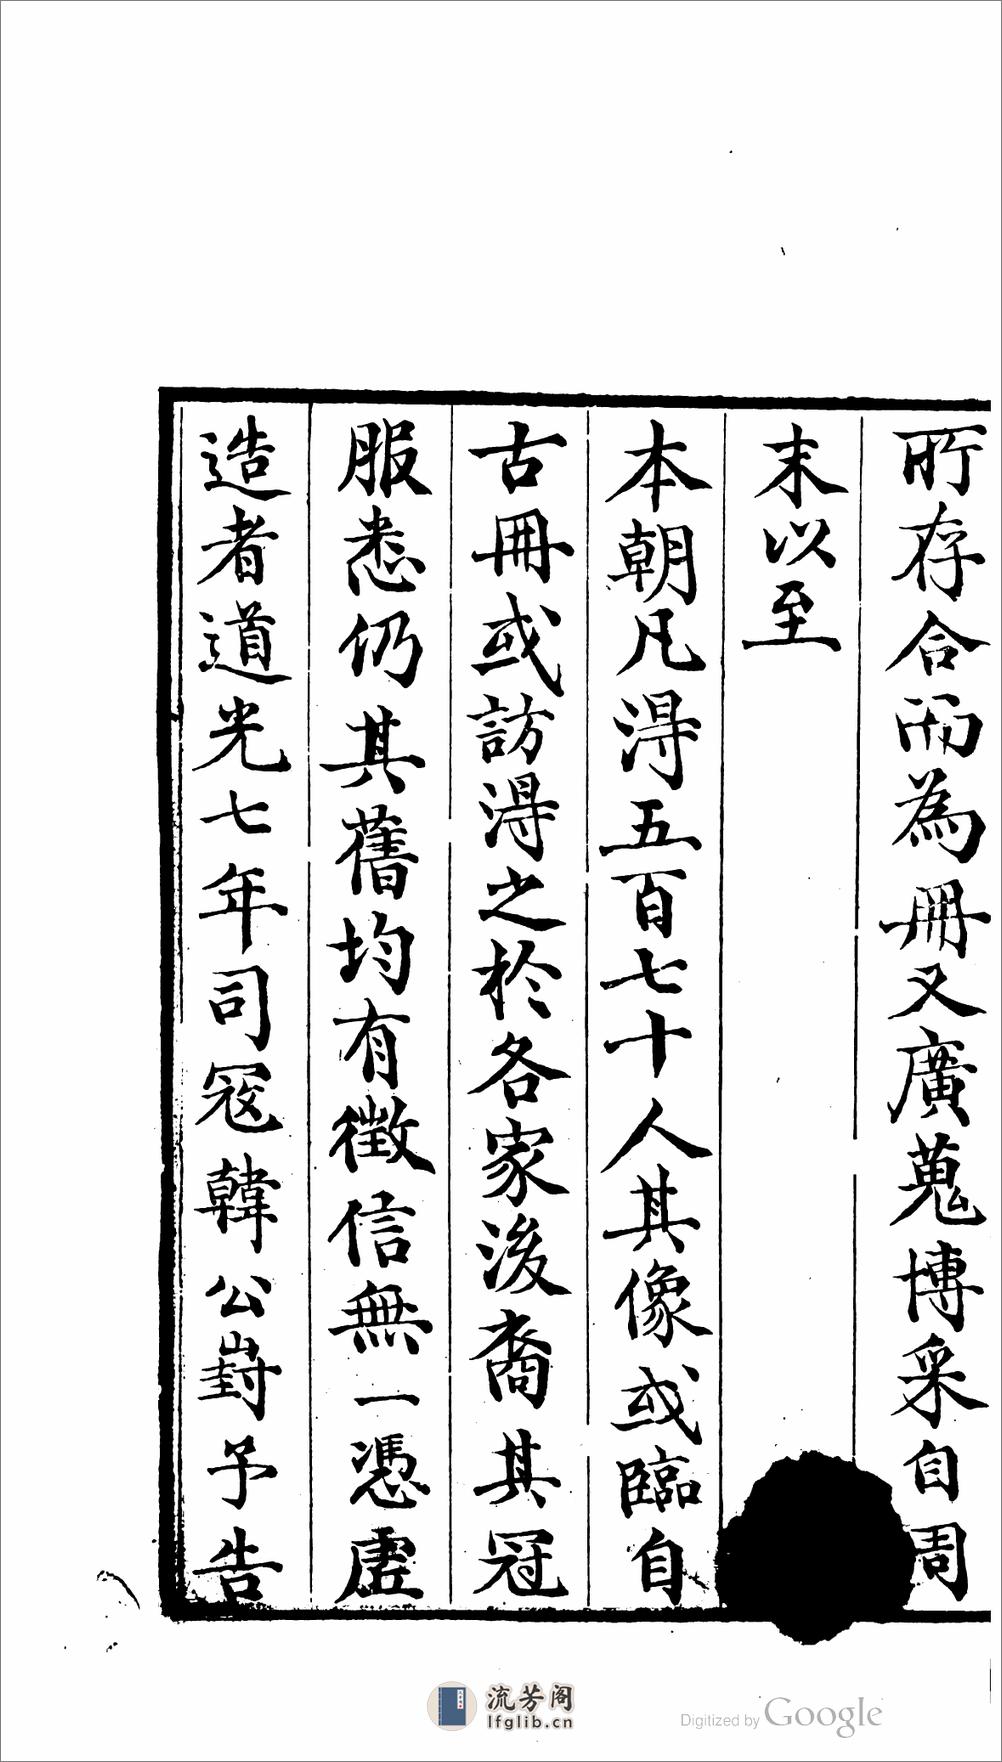 所存合而為冊又廣蒐博采自周
末以至
本朝凡淂五百七十人其像或臨自
古冊或訪淂之於各家後裔其冠
服悉仍其舊均有徵信無一憑虛
造者道光七年司寇韓公崶予告
流芳阁
lfglib.cn
Digitized by Google